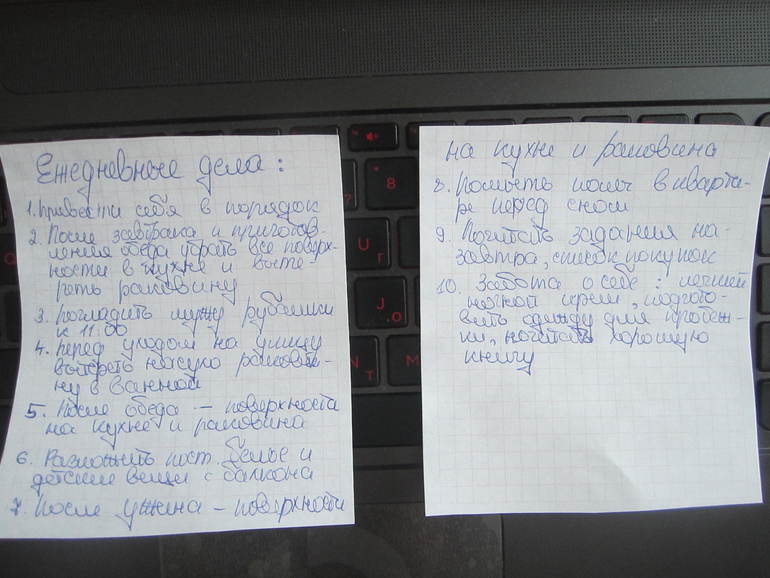 Ежедневные дела:
1. Привести себя в порядок
2. После завтрака и приготов-
ления обеда убрать все поверх-
ности в кухне и выте-
реть раковину
3. Погладить мужу рубашки
к 11.00
4. Перед уходом на улицу
вытереть насухо ракови-
ну в ванной
5. После обеда – поверхности
на кухне и раковина
6. Разложить пост. белье и
детские вещи с балкона
7. После ужина – поверхности
на кухне и раковина
8. Помыть полы в кварти-
ре перед сном
9. Почитать задания на
завтра, список покупок
10. Забота о себе: легкий
ночной крем, подгото-
вить одежду для пробеж-
ки, почитать хорошую
книгу
8
U
Г
J
О
N
Т
M